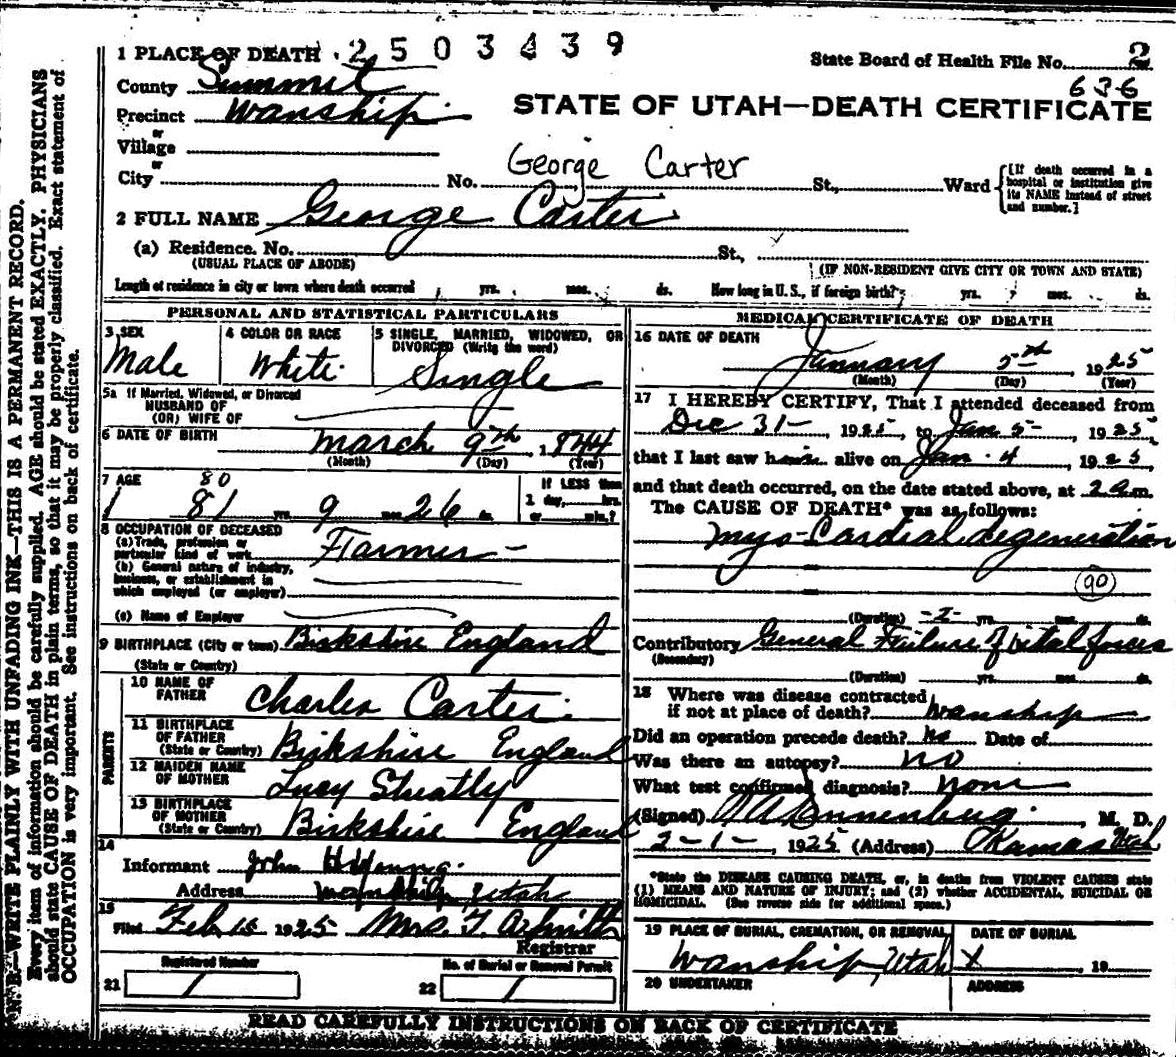 1 PLACE OF DEATH . 2 5 0 3 4 3 9
State Board of Health File No. 2
636
County Summit
STATE OF UTAH—DEATH CERTIFICATE
Precinct Wanship
or
Village
or
City No. George Carter St., Ward
[If death occurred in a hospital or institution give its NAME instead of street and number.]
2 FULL NAME George Carter
(a) Residence. No. St.,
(USUAL PLACE OF ABODE) (IF NON-RESIDENT GIVE CITY OR TOWN AND STATE)
Length of residence in city or town where death occurred yrs. mos. ds. How long in U.S., if foreign birth? yrs. mos. ds.
PERSONAL AND STATISTICAL PARTICULARS
3 SEX
Male
4 COLOR OR RACE
White
5 SINGLE, MARRIED, WIDOWED, OR DIVORCED (Write the word)
Single
5a If Married, Widowed, or Divorced
HUSBAND OF
(OR) WIFE OF
6 DATE OF BIRTH
March 9th, 1844
(Month) (Day) (Year)
7 AGE 80
81 yrs. 9 mos. 26 ds.
If LESS than
1 day, hrs.
or min.?
8 OCCUPATION OF DECEASED
(a) Trade, profession or
particular kind of work Farmer
(b) General nature of industry,
business, or establishment in
which employed (or employer)
(c) Name of Employer
9 BIRTHPLACE (City or town) Birkshire England
(State or Country)
PARENTS
10 NAME OF
FATHER Charles Carter
11 BIRTHPLACE
OF FATHER
(State or Country) Birkshire England
12 MAIDEN NAME
OF MOTHER Lucy
13 BIRTHPLACE
OF MOTHER
(State or Country) Birkshire England
14
Informant John H Young
Address Wanship Utah
15
Filed Feb 15 1925 Mrs. Smith
Registrar
Registered Number
21 1
No. of Burial or Removal Permit
22 1
MEDICAL CERTIFICATE OF DEATH
16 DATE OF DEATH
January 5th 1925
(Month) (Day) (Year)
17 I HEREBY CERTIFY, That I attended deceased from
Dec 31- , 1925, to Jan 5- , 1925,
that I last saw him alive on Jan. 4 , 1925,
and that death occurred, on the date stated above, at 2 a m.
The CAUSE OF DEATH* was as follows:
Myo-Cardial degeneration
90
(Duration) yrs. mos. ds.
Contributory General Failure of Vital forces
(Secondary)
(Duration) yrs. mos. ds.
18 Where was disease contracted
if not at place of death? Wanship
Did an operation precede death? No Date of
Was there an autopsy? no
What test confirmed diagnosis? none
(Signed) M. D.
2-1- , 1925 (Address) Kamas Utah
*State the DISEASE CAUSING DEATH, or, in deaths from VIOLENT CAUSES state
(1) MEANS AND NATURE OF INJURY; and (2) whether ACCIDENTAL, SUICIDAL OR
HOMICIDAL. (See reverse side for additional space.)
19 PLACE OF BURIAL, CREMATION, OR REMOVAL
Wanship, Utah
DATE OF BURIAL
X 19
20 UNDERTAKER
ADDRESS
READ CAREFULLY INSTRUCTIONS ON BACK OF CERTIFICATE
N. B.—WRITE PLAINLY WITH UNFADING INK—THIS IS A PERMANENT RECORD.
Every item of information should be carefully supplied. AGE should be stated EXACTLY. PHYSICIANS
should state CAUSE OF DEATH in plain terms, so that it may be properly classified. Exact statement of
OCCUPATION is very important. See instructions on back of certificate.